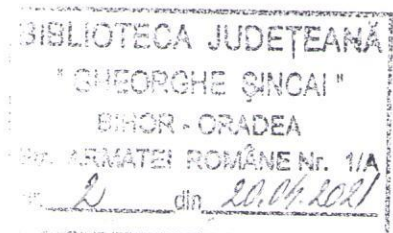 BIBLIOTECA JUDEȚEANĂ
" GHEORGHE ȘINCAI "
BIHOR - ORADEA
ARMATEI ROMÂNE Nr. 1/A
2 din 20.04.2021